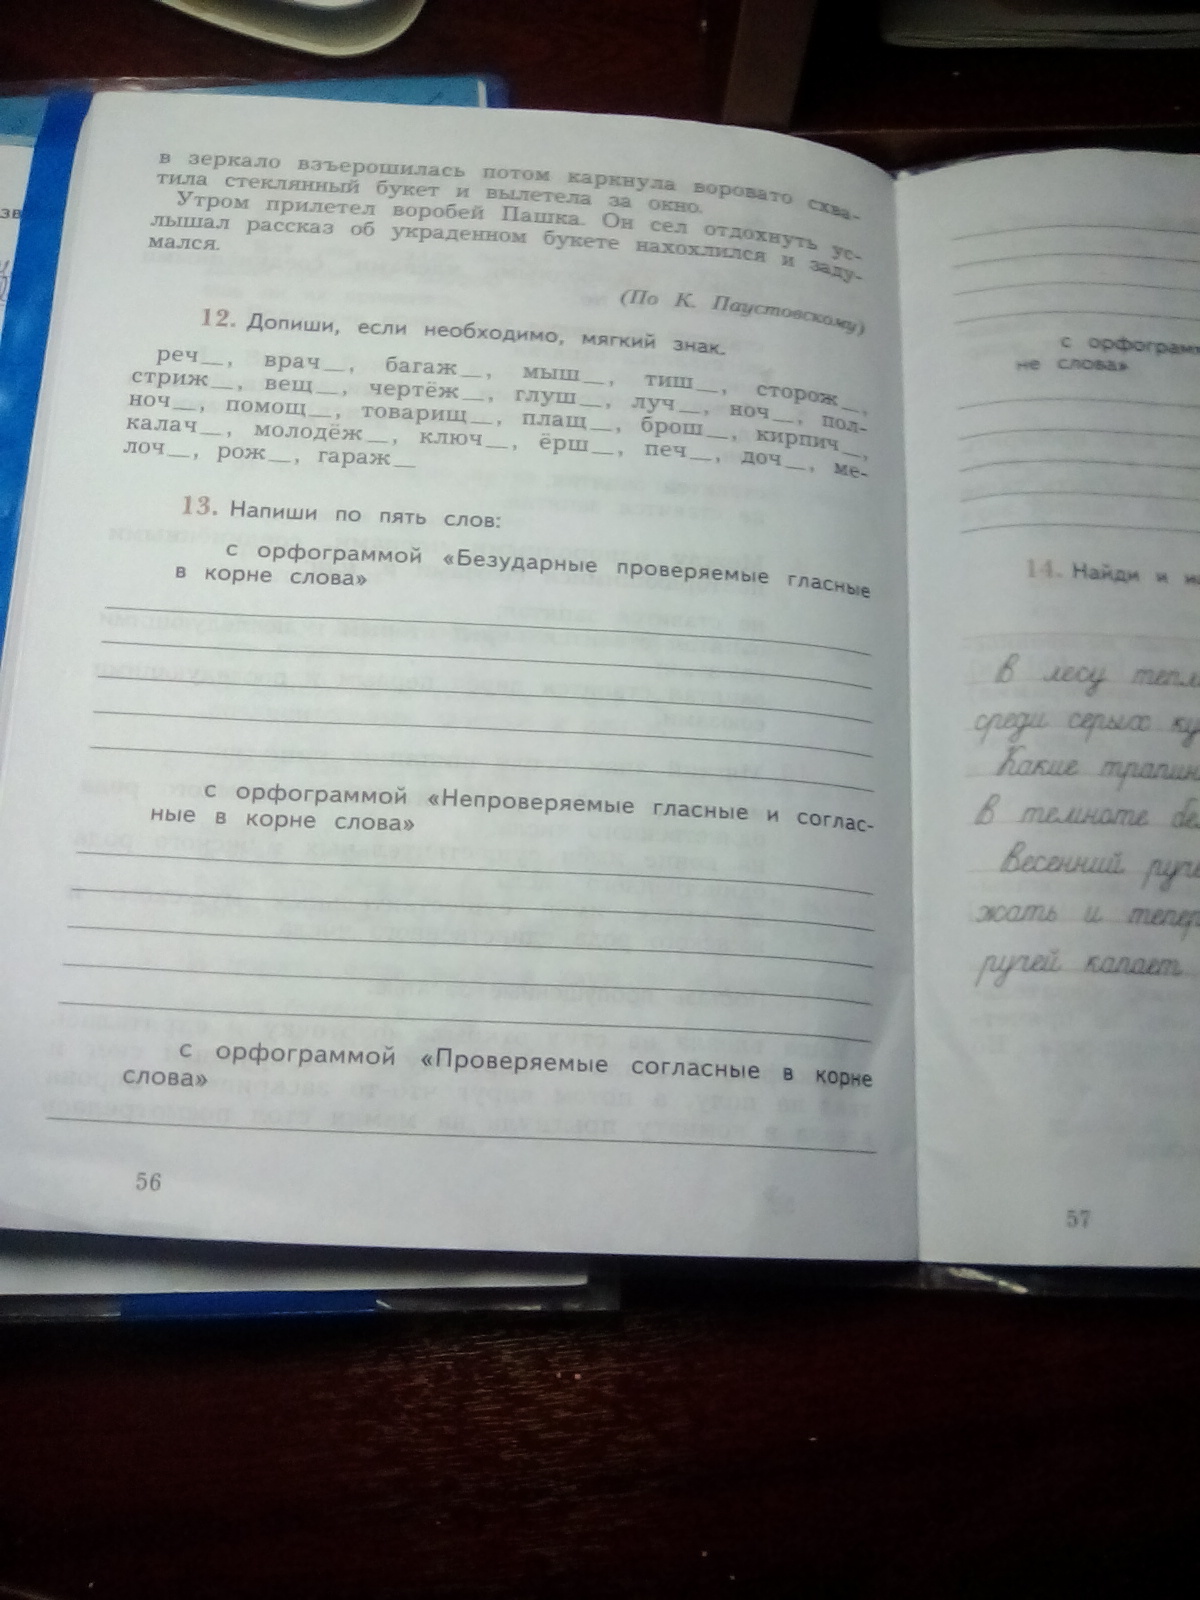 в зеркало взъерошилась потом каркнула воровато схва-
тила стеклянный букет и вылетела за окно.
Утром прилетел воробей Пашка. Он сел отдохнуть ус-
лышал рассказ об украденном букете нахохлился и заду-
мался.
(По К. Паустовскому)
12. Допиши, если необходимо, мягкий знак.
реч__, врач__, багаж__, мыш__, тиш__, сторож__,
стриж__, вещ__, чертёж__, глуш__, луч__, ноч__, пол-
ноч__, помощ__, товарищ__, плащ__, брош__, кирпич__,
калач__, молодёж__, ключ__, ёрш__, печ__, доч__, ме-
лоч__, рож__, гараж__
13. Напиши по пять слов:
с орфограммой «Безударные проверяемые гласные
в корне слова»
с орфограммой «Непроверяемые гласные и соглас-
ные в корне слова»
с орфограммой «Проверяемые согласные в корне
слова»
56
с орфограмм
не слова»
14. Найди и
В лесу тепл
среди серых ку
Какие трапин
В темноте бе
Весенний руч
жать и тепер
ручей капает
57
зв